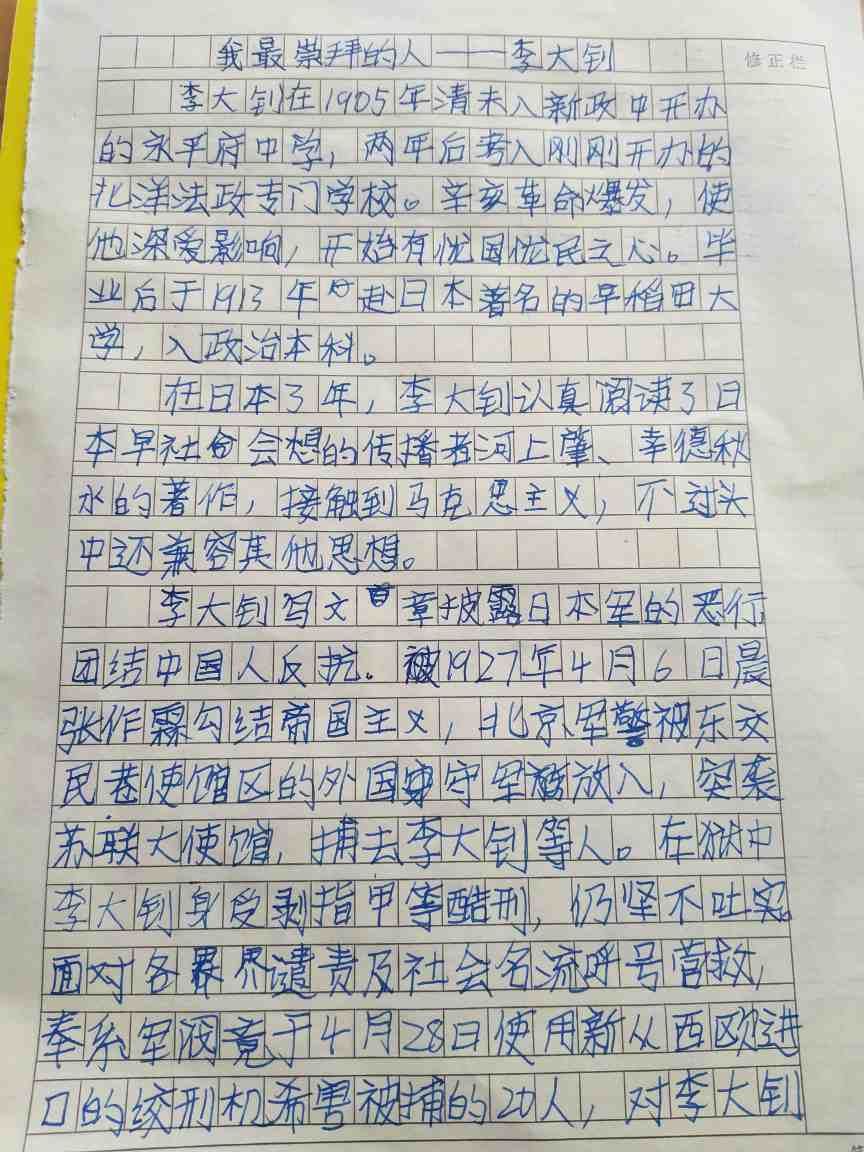 我最崇拜的人——李大钊
修正栏
李大钊在1905年清末入新政中开办
的永平府中学，两年后考入刚刚开办的
北洋法政专门学校。辛亥革命爆发，使
他深爱影响，开始有忧国忧民之心。毕
业后于1913年 赴日本著名的早稻田大
学，入政治本科。
在日本3年，李大钊认真阅读了日
本早社命会想的传播者河上肇、幸德秋
水的著作，接触到马克思主义，不过头
中还兼容其他思想。
李大钊写文章披露日本军的恶行，
团结中国人反抗。被1927年4月6日晨
张作霖勾结帝国主义，北京军警被东交
民巷使馆区的外国守军放入，突袭
苏联大使馆，捕去李大钊等人。在狱中
李大钊身受剥指甲等酷刑，仍坚不吐实。
面对各界谴责及社会名流呼号营救，
奉系军阀竟于4月28日使用新从西欧进
口的绞刑机希害被捕的20人，对李大钊